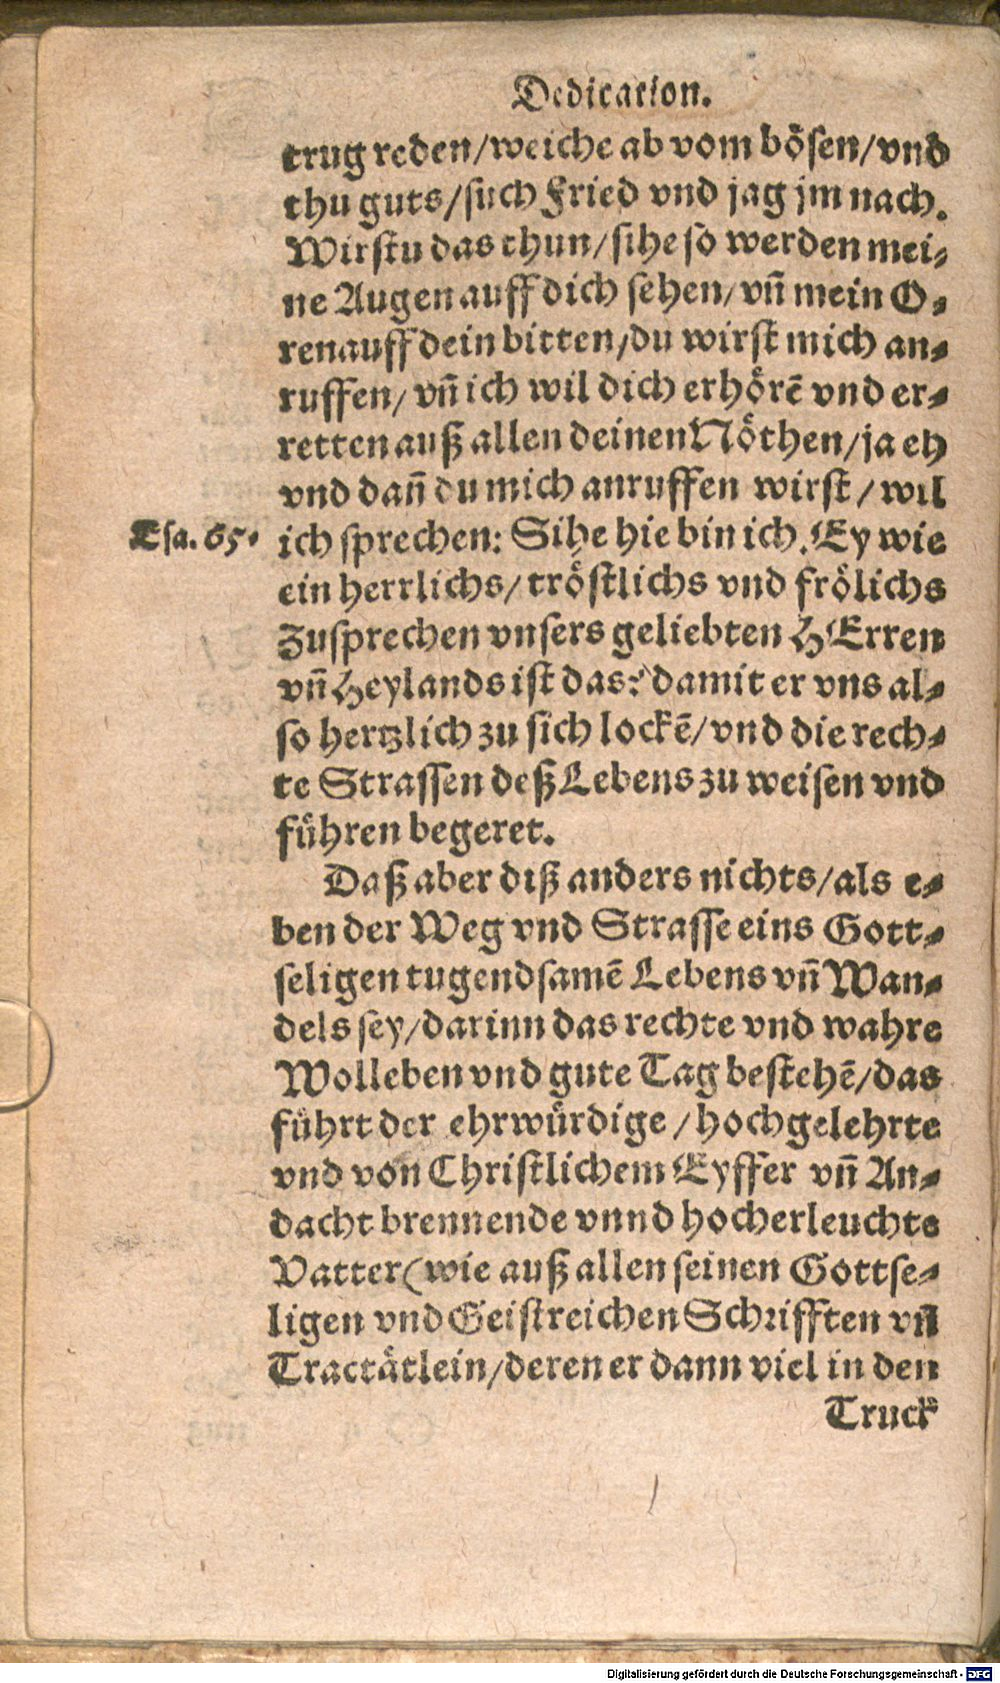 Dedication.
trug reden/weiche ab vom bösen/vnd
thu guts/such Fried vnd jag jm nach.
Wirstu das thun/sihe so werden mei-
ne Augen auff dich sehen/vñ mein O-
ren auff dein bitten/du wirst mich an-
ruffen/vñ ich wil dich erhörẽ vnd er-
retten auß allen deinen Nöthen/ja eh
vnd dañ du mich anruffen wirst/wil
Esa. 65. ich sprechen: Sihe hie bin ich. Ey wie
ein herrlichs/tröstlichs vnd frölichs
Zusprechen vnsers geliebten HErren
vñ Heylands ist das? damit er vns al-
so hertzlich zu sich lockẽ/vnd die rech-
te Strassen deß Lebens zu weisen vnd
führen begeret.
Daß aber diß anders nichts/als e-
ben der Weg vnd Strasse eins Gott-
seligen tugendsamẽ Lebens vñ Wan-
dels sey/darinn das rechte vnd wahre
Wolleben vnd gute Tag bestehẽ/das
führt der ehrwürdige/hochgelehrte
vnd von Christlichem Eyffer vñ An-
dacht brennende vnnd hocherleuchte
Vatter (wie auß allen seinen Gottse-
ligen vnd Geistreichen Schrifften vñ
Tractätlein/deren er dann viel in den
Truck
Digitalisierung gefördert durch die Deutsche Forschungsgemeinschaft - DFG